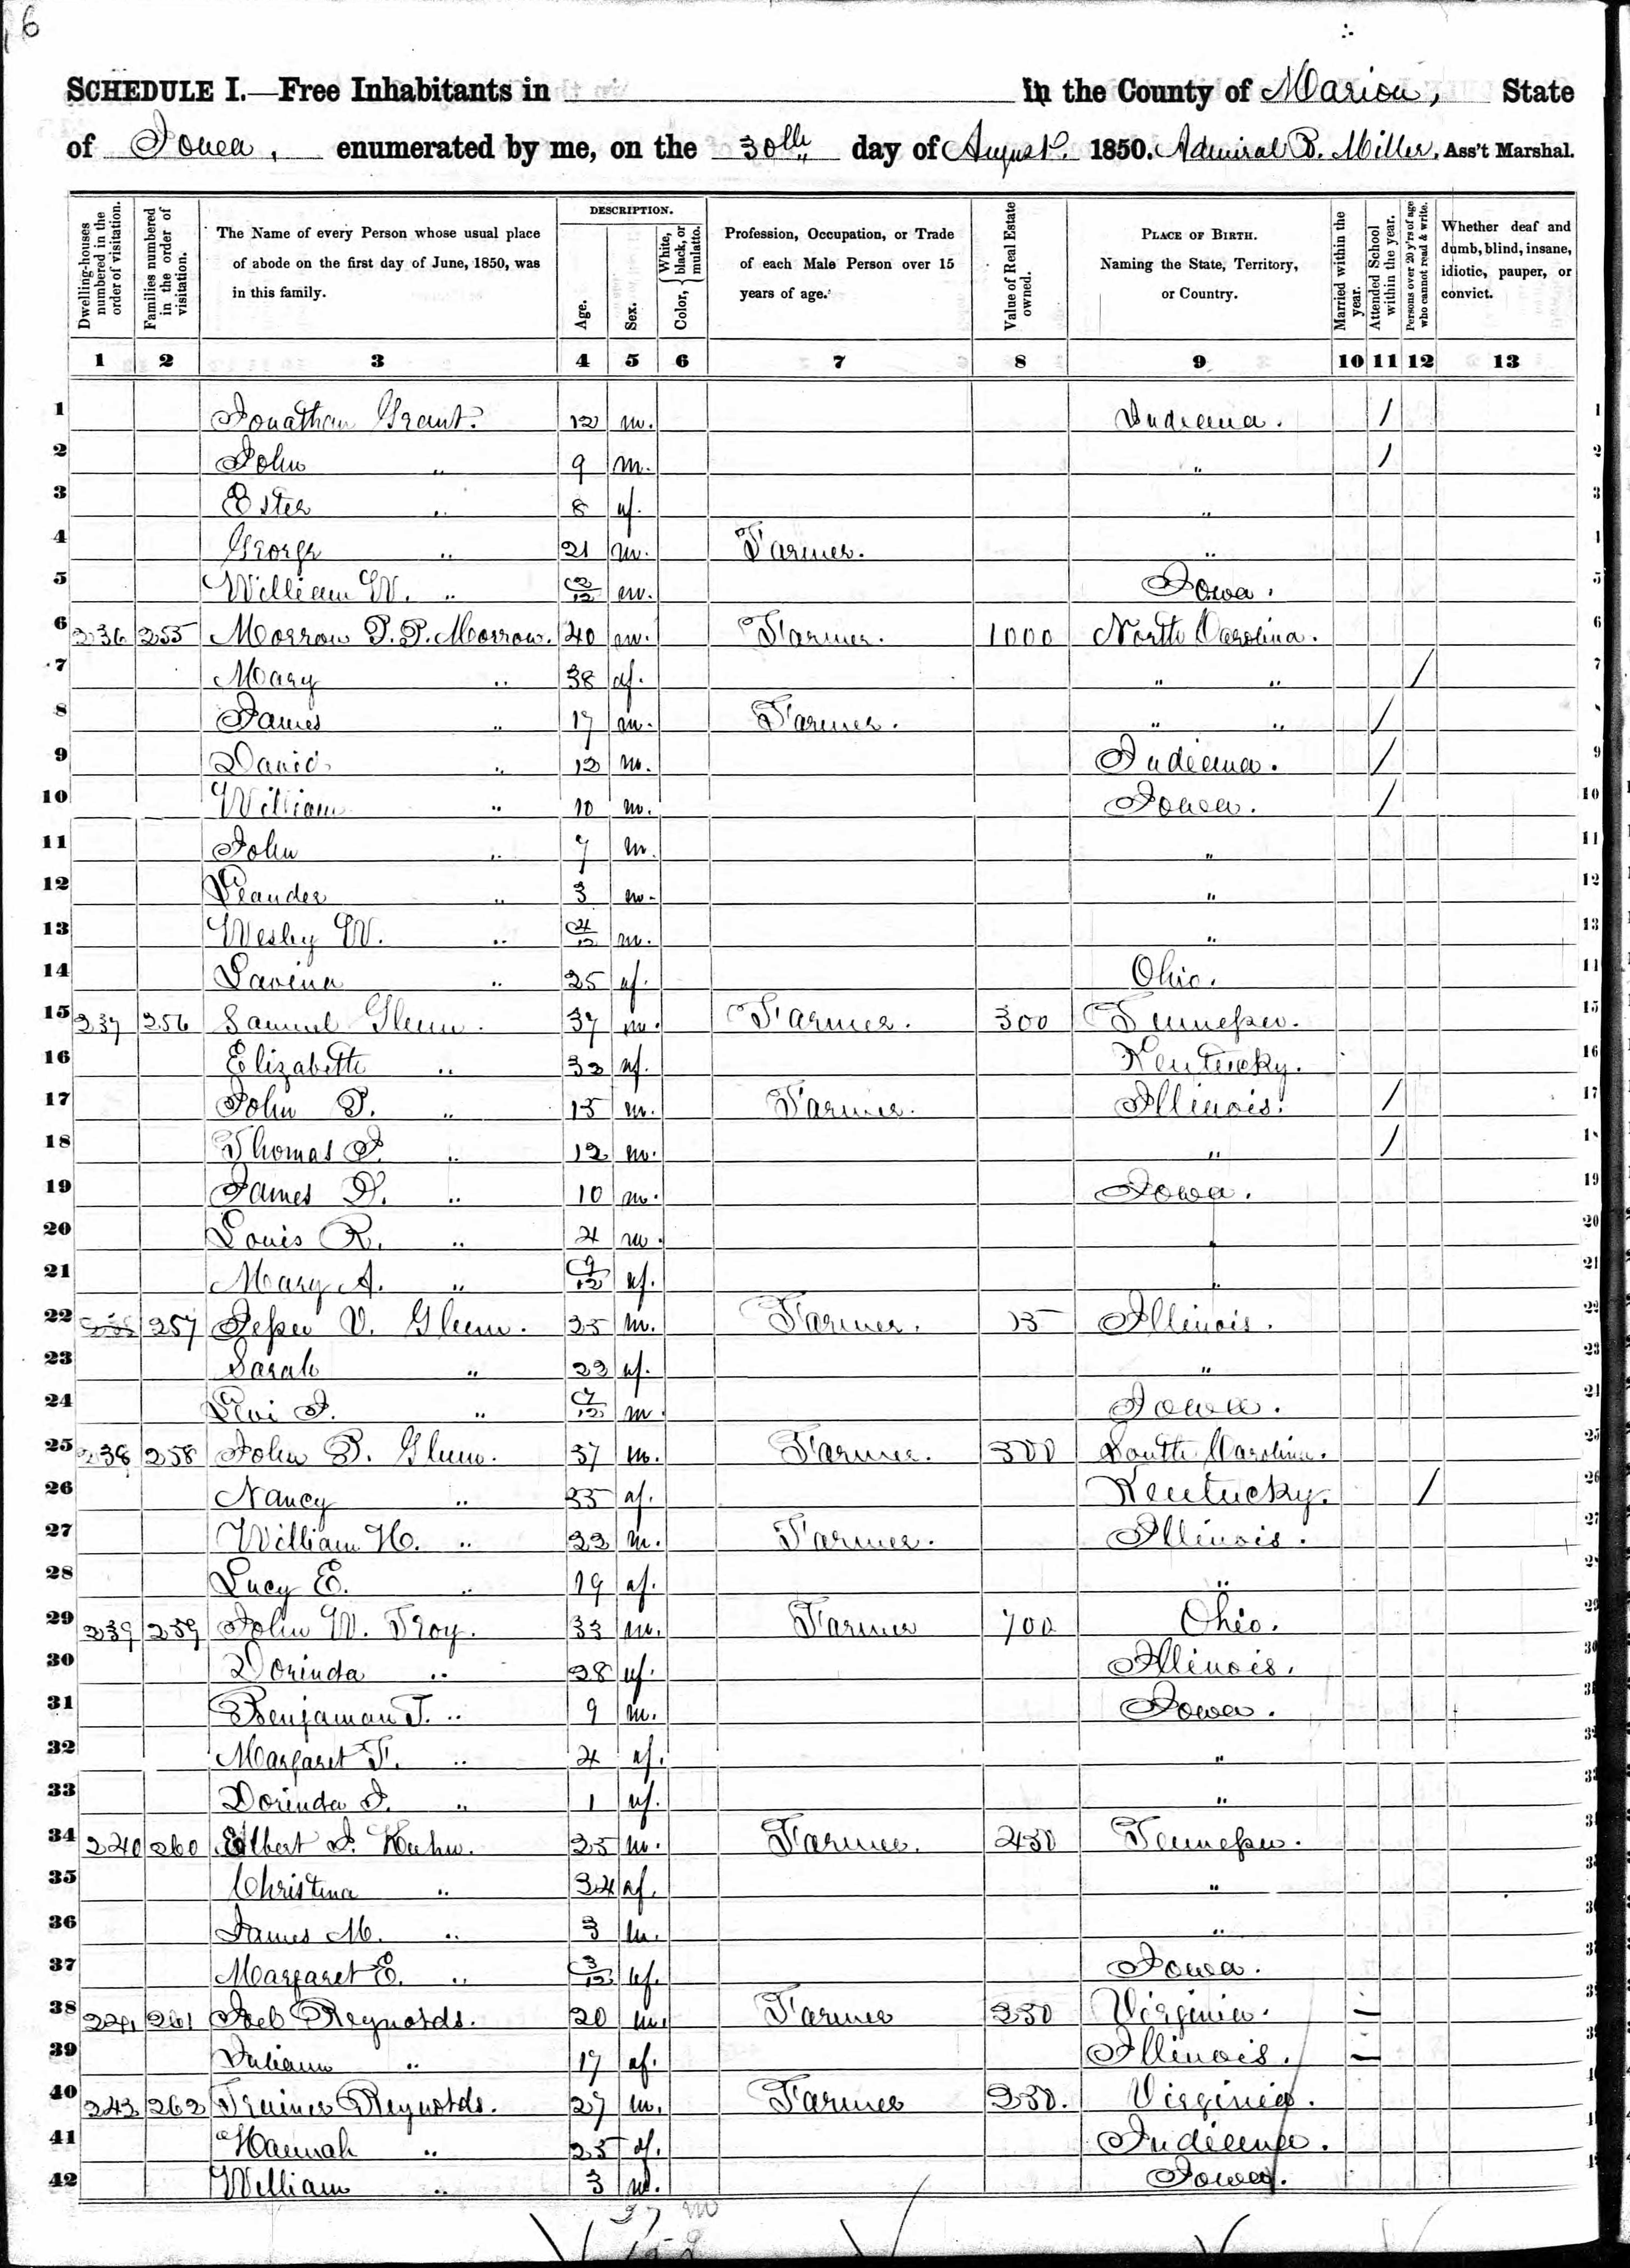 6
SCHEDULE I.—Free Inhabitants in in the County of Marion, State
of Iowa, enumerated by me, on the 30th day of August. 1850. Admiral B. Miller, Ass't Marshal.
Dwelling-houses numbered in the order of visitation.
Families numbered in the order of visitation.
The Name of every Person whose usual place of abode on the first day of June, 1850, was in this family.
DESCRIPTION.
Age.
Sex.
Color, { White, black, or mulatto.
Profession, Occupation, or Trade of each Male Person over 15 years of age.
Value of Real Estate owned.
PLACE OF BIRTH. Naming the State, Territory, or Country.
Married within the year.
Attended School within the year.
Persons over 20 y'rs of age who cannot read & write.
Whether deaf and dumb, blind, insane, idiotic, pauper, or convict.
1 2 3 4 5 6 7 8 9 10 11 12 13
1 Jonathan Grant. 12 m. Indiana. / 1
2 John " 9 m. " / 2
3 Ester " 8 f. " 3
4 George " 21 m. Farmer. "
5 William W. " 2/12 m. Iowa. 5
6 236 255 Morrow P. P. Morrow. 40 m. Farmer. 1000 North Carolina. 6
7 Mary " 38 f. " " / 7
8 James " 17 m. Farmer. " " /
9 David " 12 m. Indiana. / 9
10 William " 10 m. Iowa. / 10
11 John " 7 m. " 11
12 Leander " 3 m. " 12
13 Wesley W. " 4/12 m. " 13
14 Lavina " 25 f. Ohio.
15 237 256 Samuel Glenn. 37 m. Farmer. 300 Tennessee. 15
16 Elizabeth " 32 f. Kentucky. 16
17 John P. " 15 m. Farmer. Illinois. / 17
18 Thomas J. " 12 m. " /
19 James " 10 m. Iowa. 19
20 Louis R. " 4 m. " 20
21 Mary A. " 9/12 f. " 21
22 257 Jesse V. Glenn. 25 m. Farmer. Illinois. 22
23 Sarah " 22 f. " 23
24 Levi J. " 7/12 m. Iowa.
25 238 258 John P. Glenn. 37 m. Farmer. 300 South Carolina. 25
26 Nancy " 35 f. Kentucky. / 26
27 William H. " 22 m. Farmer. Illinois. 27
28 Lucy E. " 19 f. "
29 239 259 John W. Troy. 33 m. Farmer 700 Ohio.
30 Dorinda " 28 f. Illinois.
31 Benjaman T. " 9 m. Iowa.
32 Margaret F. " 4 f. "
33 Dorinda J. " 1 f. "
34 240 260 Elbert J. 25 m. Farmer. 450 Tennessee.
35 Christina " 24 f. "
36 James M. " 3 m. "
37 Margaret E. " 3/12 f. Iowa.
38 241 261 Joel Reynolds. 20 m. Farmer 250 Virginia. —
39 Juliann " 17 f. Illinois. —
40 242 262 Reynolds. 27 m. Farmer 250. Virginia.
41 Hannah " 25 f. Indiana.
42 William " 3 m. Iowa.
27 m
15 f